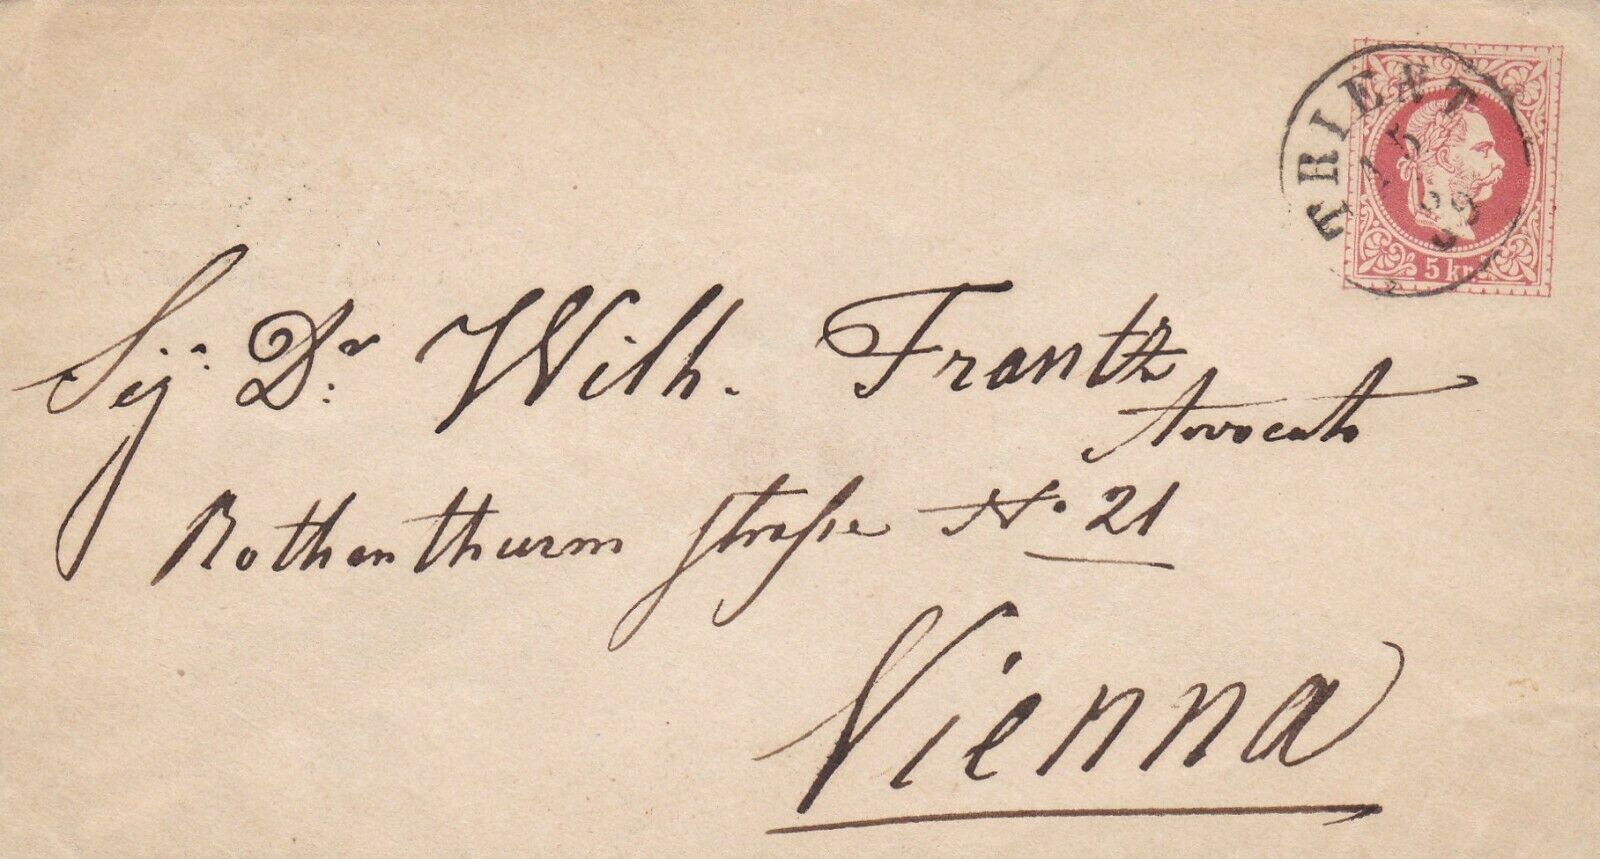 TRIENT
15
5 kr.
Sigʳ. Dʳ: Wilh. Frantz
Avvocato
Rothenthurm straße Nº 21
Vienna